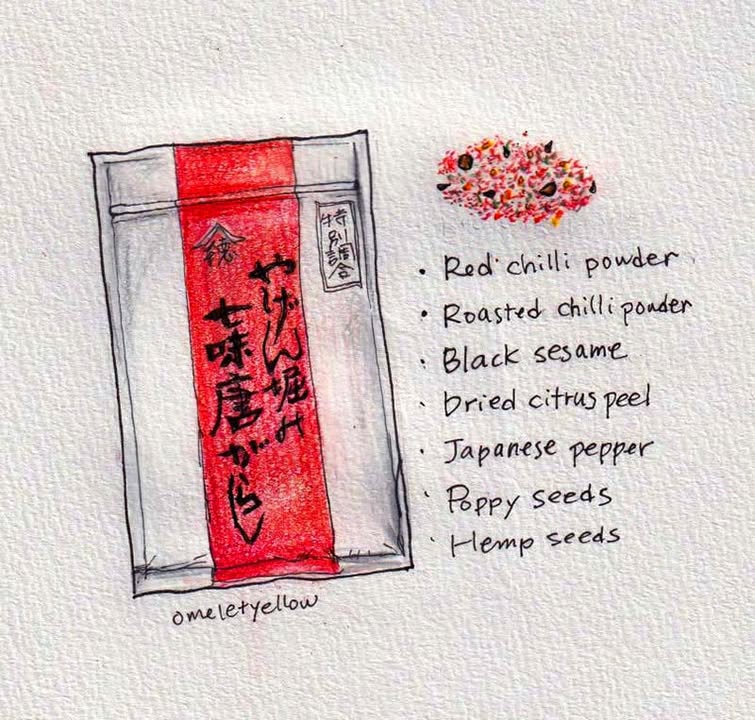 徳
やげん堀み
七味唐がらし
特別調合
• Red chilli powder
• Roasted chilli powder
• Black sesame
• Dried citrus peel
• Japanese pepper
• Poppy seeds
• Hemp seeds
omeletyellow